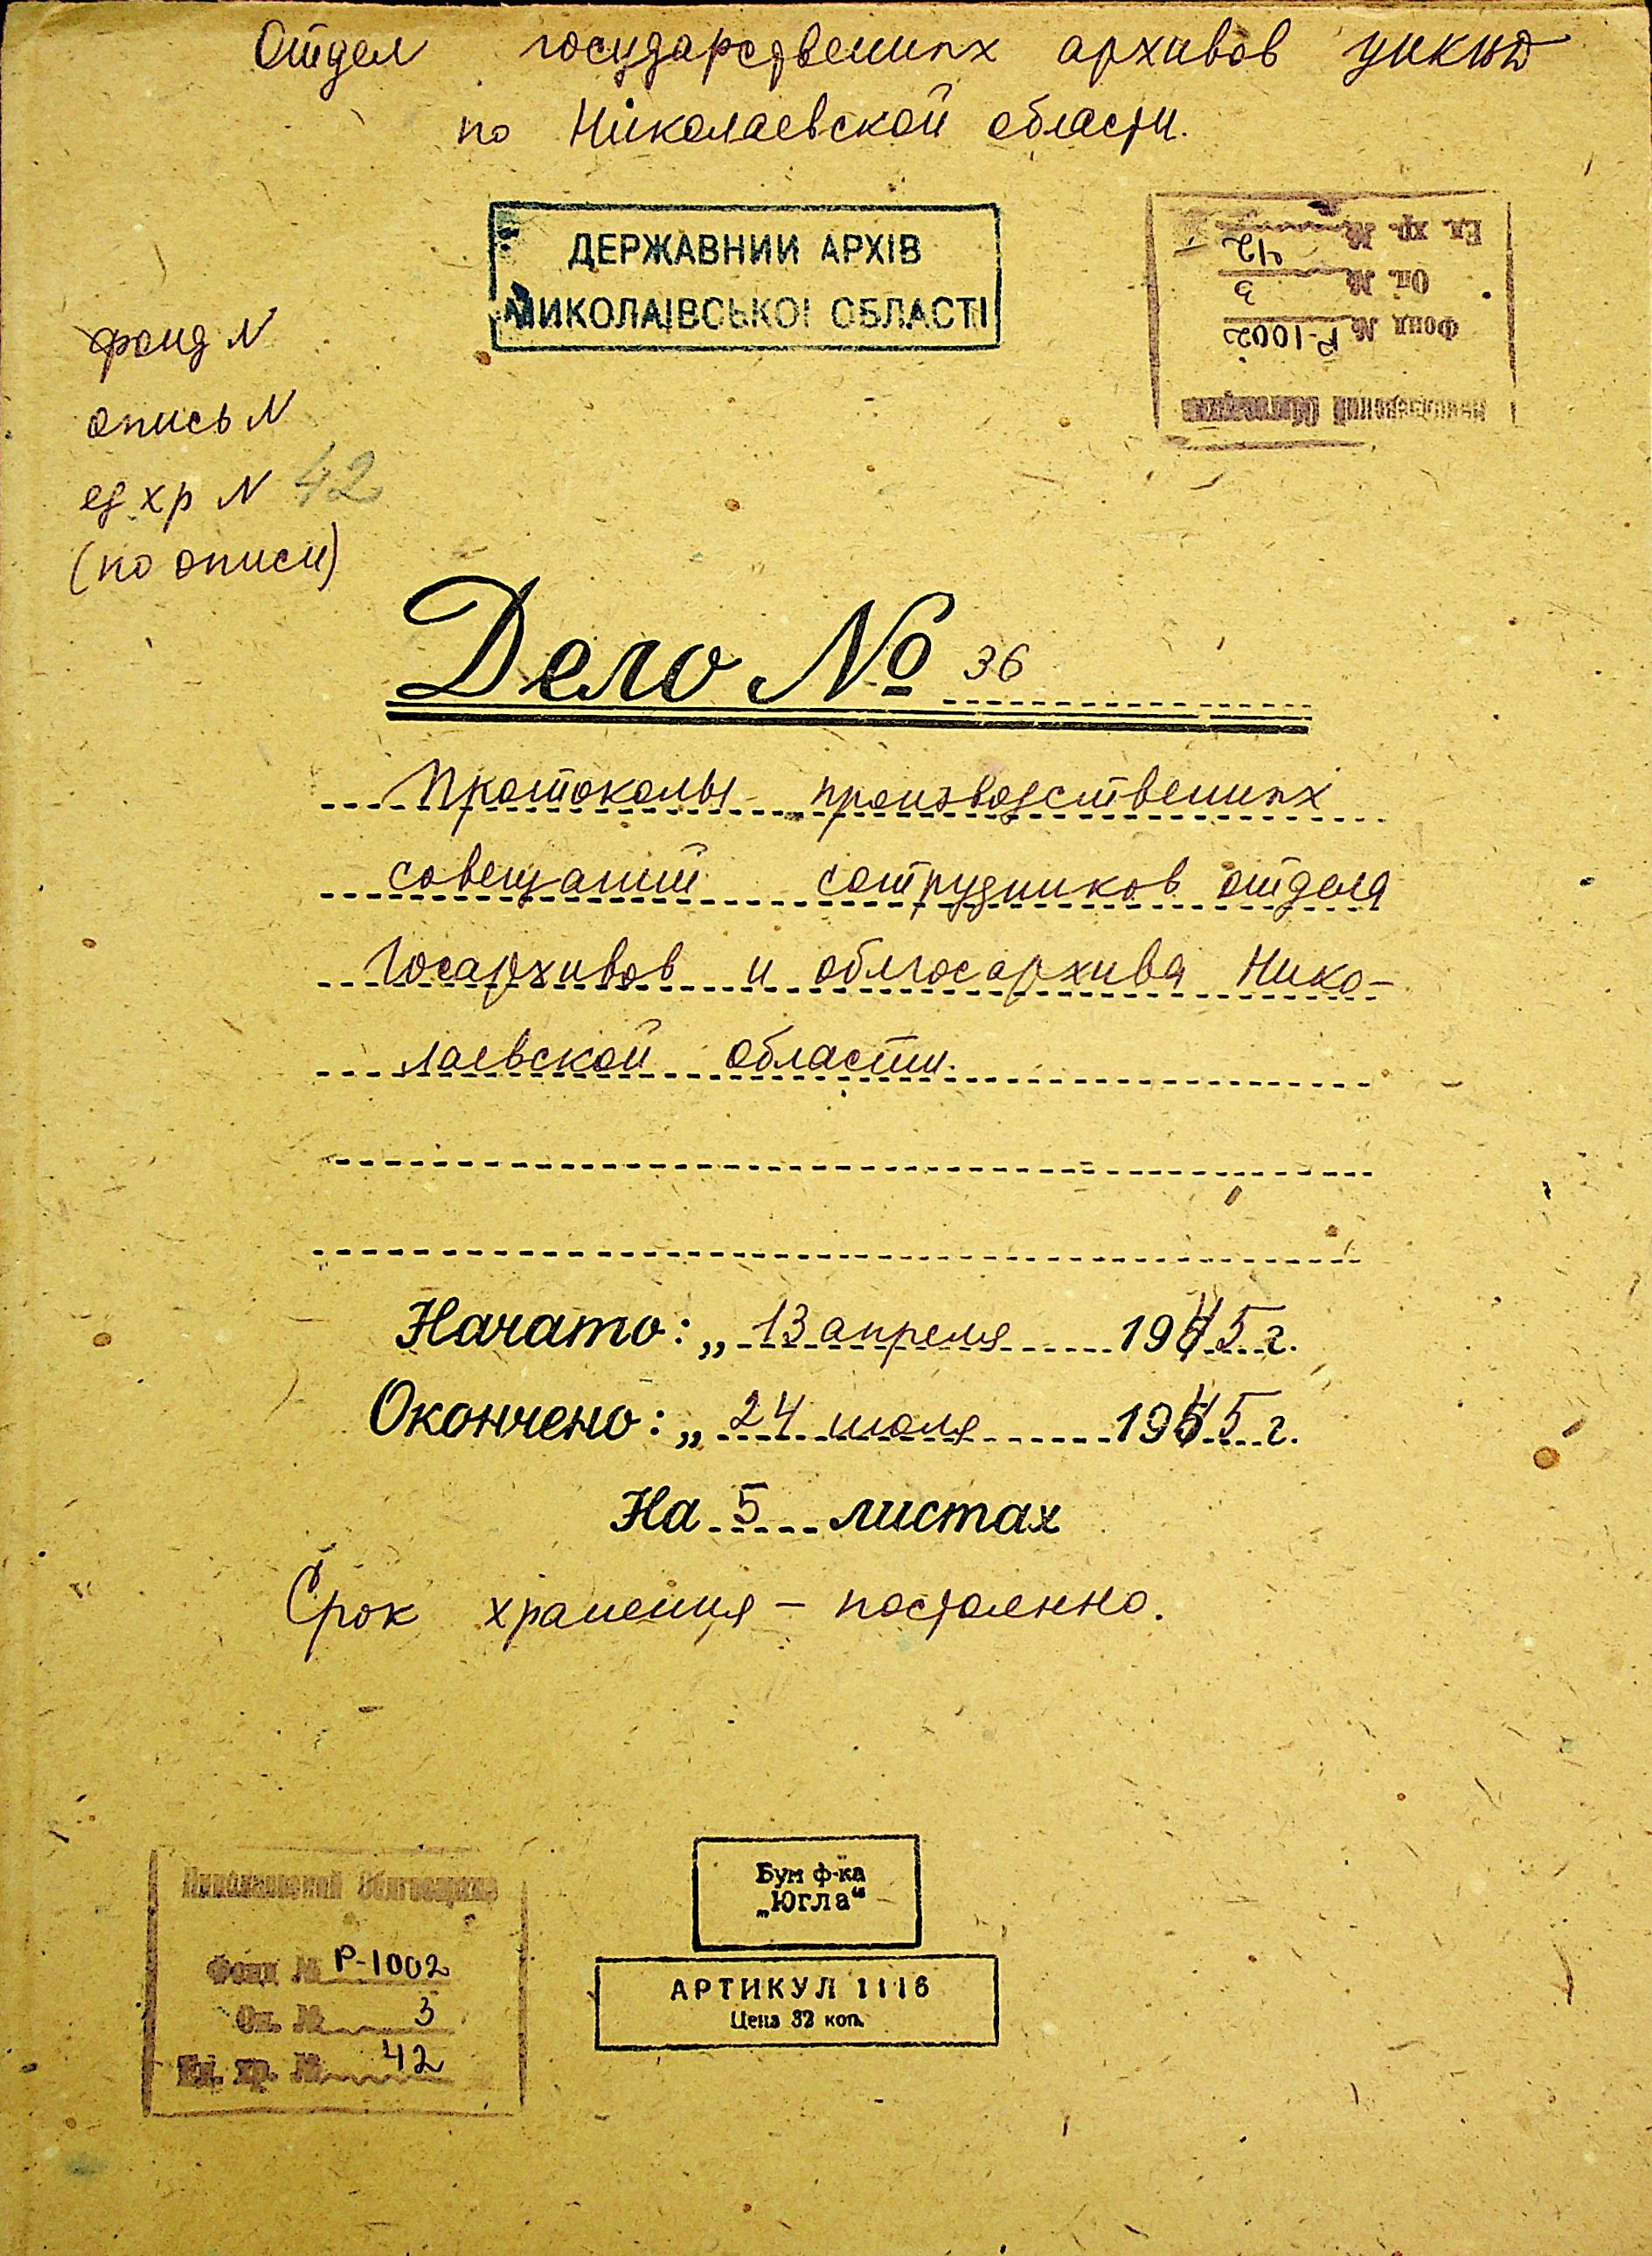 Отдел государственных архивов УНКВД
по Николаевской области.
ДЕРЖАВНИЙ АРХІВ
МИКОЛАЇВСЬКОЇ ОБЛАСТІ
Николаевский Облгосархив
Фонд № Р-1002
Оп. № 3
Ед. хр. № 42
фонд N
опись N
ед хр N 42
(по описи)
Дело № 36
Протоколы производственных
совещаний сотрудников отдела
Госархивов и облгосархива Нико-
лаевской области.
Начато: „ 13 апреля 1945 г.
Окончено: „ 24 июля 1945 г.
На 5 листах
Срок хранения – постоянно.
Бум ф-ка
„Югла“
АРТИКУЛ 1116
Цена 32 коп.
Николаевский Облгосархив
Фонд № Р-1002
Оп. № 3
Ед. хр. № 42